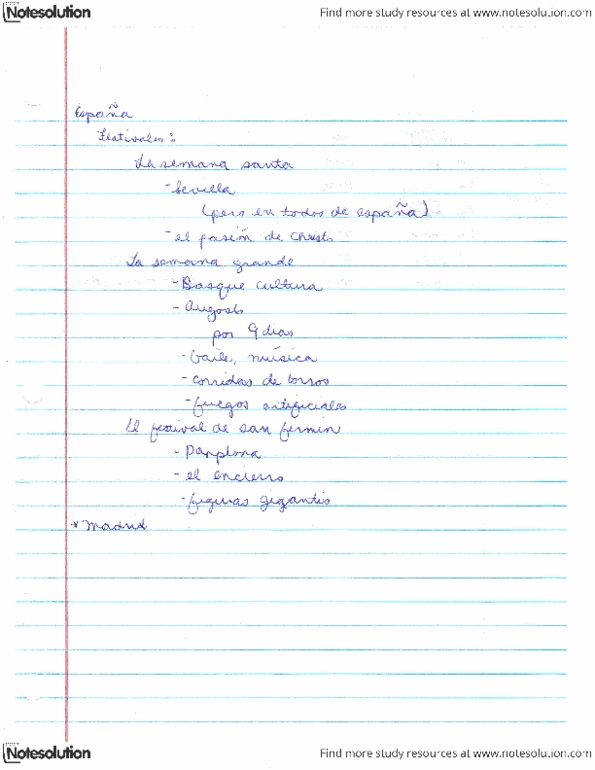 Notesolution
Find more study resources at www.notesolution.com
España
Festivales:
La semana santa
-Sevilla
(pero en todos de españa)
-el pasión de Christo
La semana grande
-Basque cultura
-Augosto
por 9 dias
-baile, música
-corridas de torros
-fuegos artificiales
El festival de san fermin
-Pamplona
-el encierro
-figuras gigantis
*Madrid
Notesolution
Find more study resources at www.notesolution.com